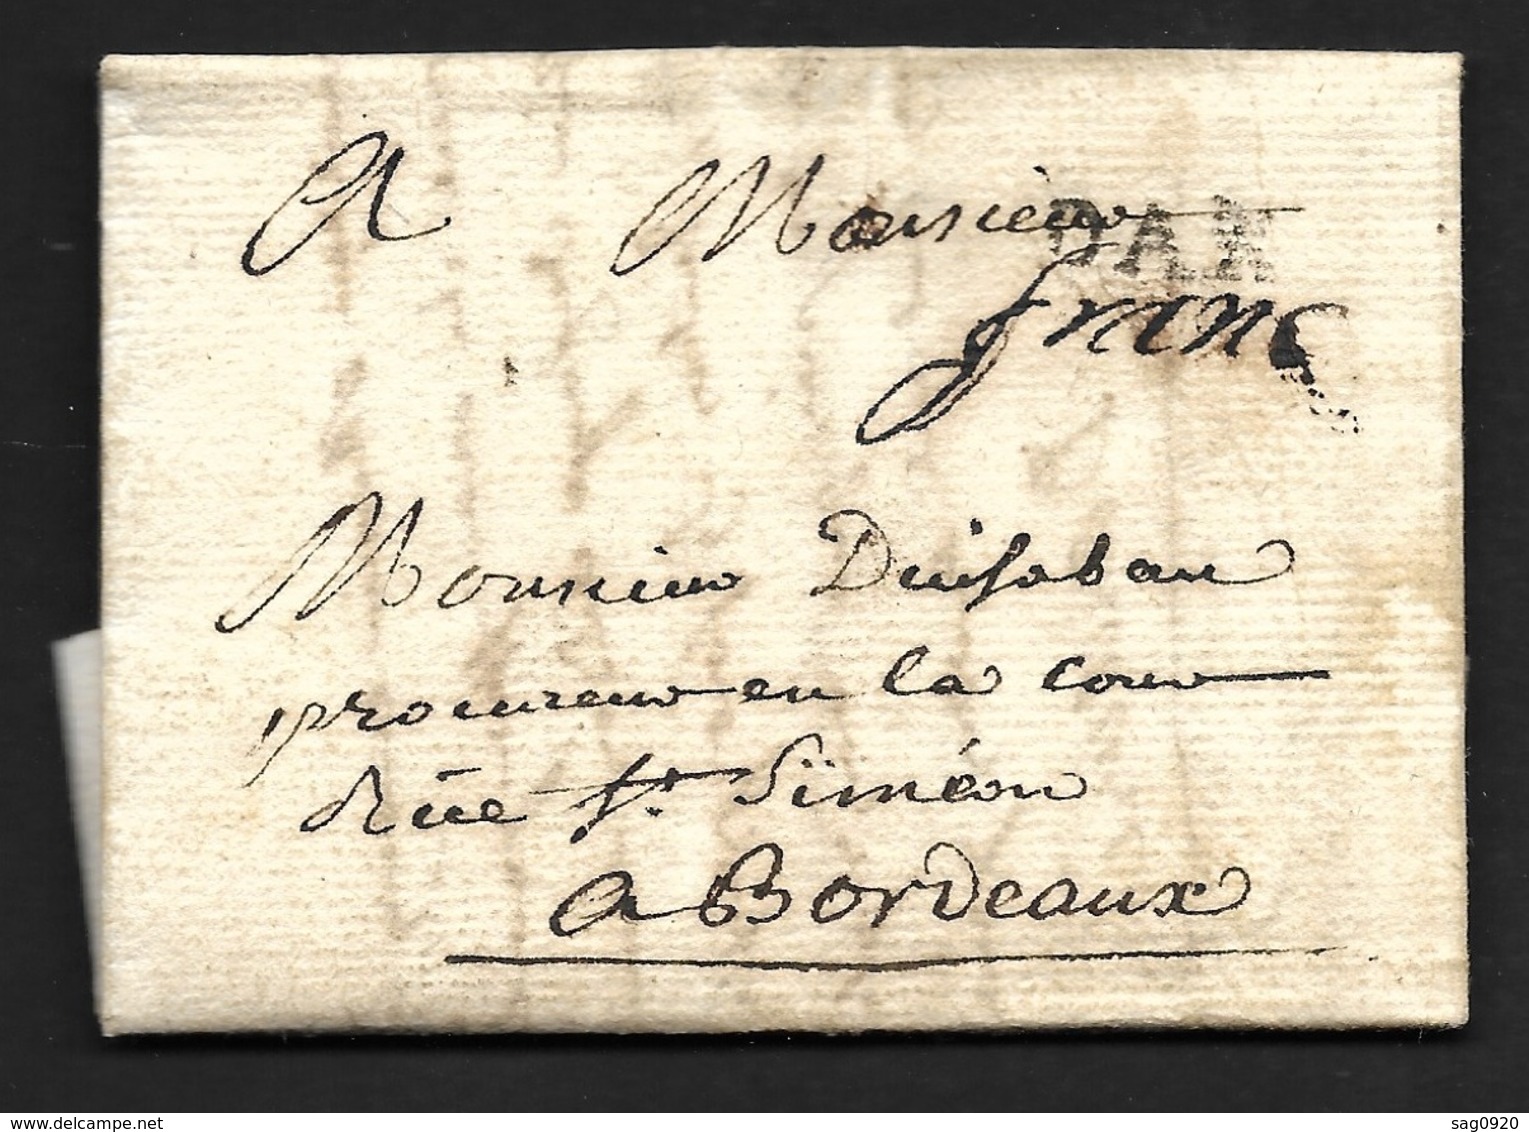 A Monsieur
DAX
franc
Monsieur Duisabau
procureur en la cour
Rüe St. Siméon
a Bordeaux
sag0920